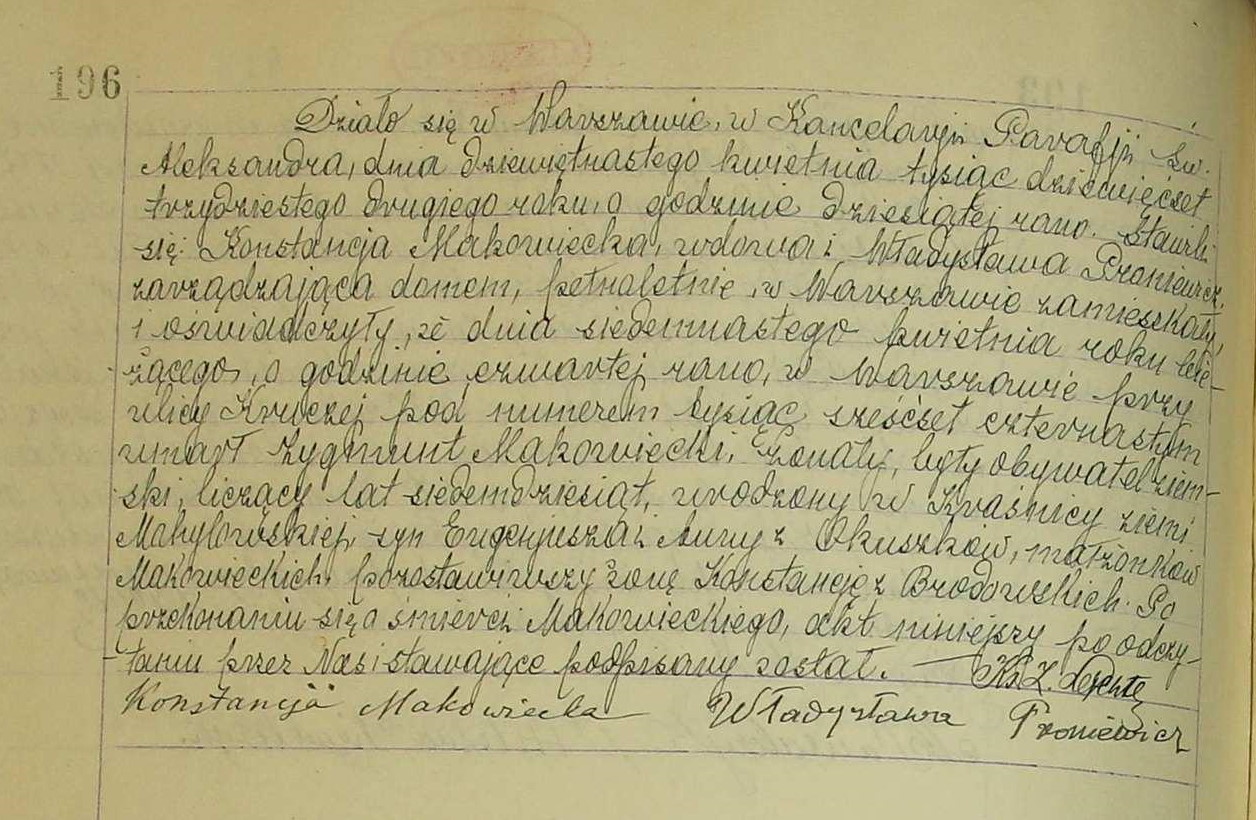 196
Działo się w Warszawie, w Kancelaryi Parafji św.
Aleksandra, dnia dziewiętnastego kwietnia tysiąc dziewięćset
trzydziestego drugiego roku, o godzinie dziesiątej rano. Stawiły
się: Konstancja Makowiecka, wdowa i Władysława Proniewicz,
zarządzająca domem, pełnoletnie, w Warszawie zamieszkałe,
i oświadczyły, że dnia siedemnastego kwietnia roku bie-
żącego, o godzinie czwartej rano, w Warszawie przy
ulicy Kruczej pod numerem tysiąc sześćset czternastym
zmarł Zygmunt Makowiecki, żonaty, były obywatel ziem-
ski, liczący lat siedemdziesiąt, urodzony w Kraśnicy ziemi
Mohylowskiej, syn Eugenjusza i Anny z Okuszków, małżonków
Makowieckich, pozostawiwszy żonę Konstancję z Brodowskich. Po
przekonaniu się o śmierci Makowieckiego, akt niniejszy po odczy-
taniu przez Nas i stawające podpisany został. Ks. Z.
Konstancja Makowiecka Władysława Proniewicz